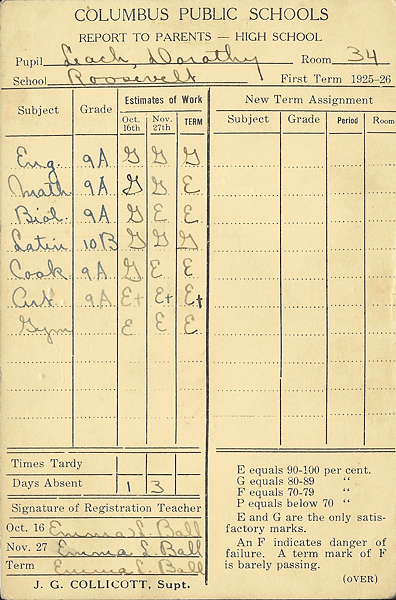 COLUMBUS PUBLIC SCHOOLS
REPORT TO PARENTS — HIGH SCHOOL
Pupil Leach, Dorathy Room 34
School Roosevelt First Term 1925-26
Subject Grade Estimates of Work New Term Assignment
Oct. 16th Nov. 27th TERM Subject Grade Period Room
Eng. 9A G G G
Math 9A G G E
Biol. 9A G E E
Latin 10B G G G
Cook 9A G E E
Art 9A E+ E+ E+
Gym E E E
Times Tardy
Days Absent 1 3
Signature of Registration Teacher
Oct. 16 Emma L. Ball
Nov. 27 Emma L. Ball
Term Emma L. Ball
J. G. COLLICOTT, Supt.
E equals 90-100 per cent.
G equals 80-89 "
F equals 70-79 "
P equals below 70 "
E and G are the only satis-
factory marks.
An F indicates danger of
failure. A term mark of F
is barely passing.
(OVER)